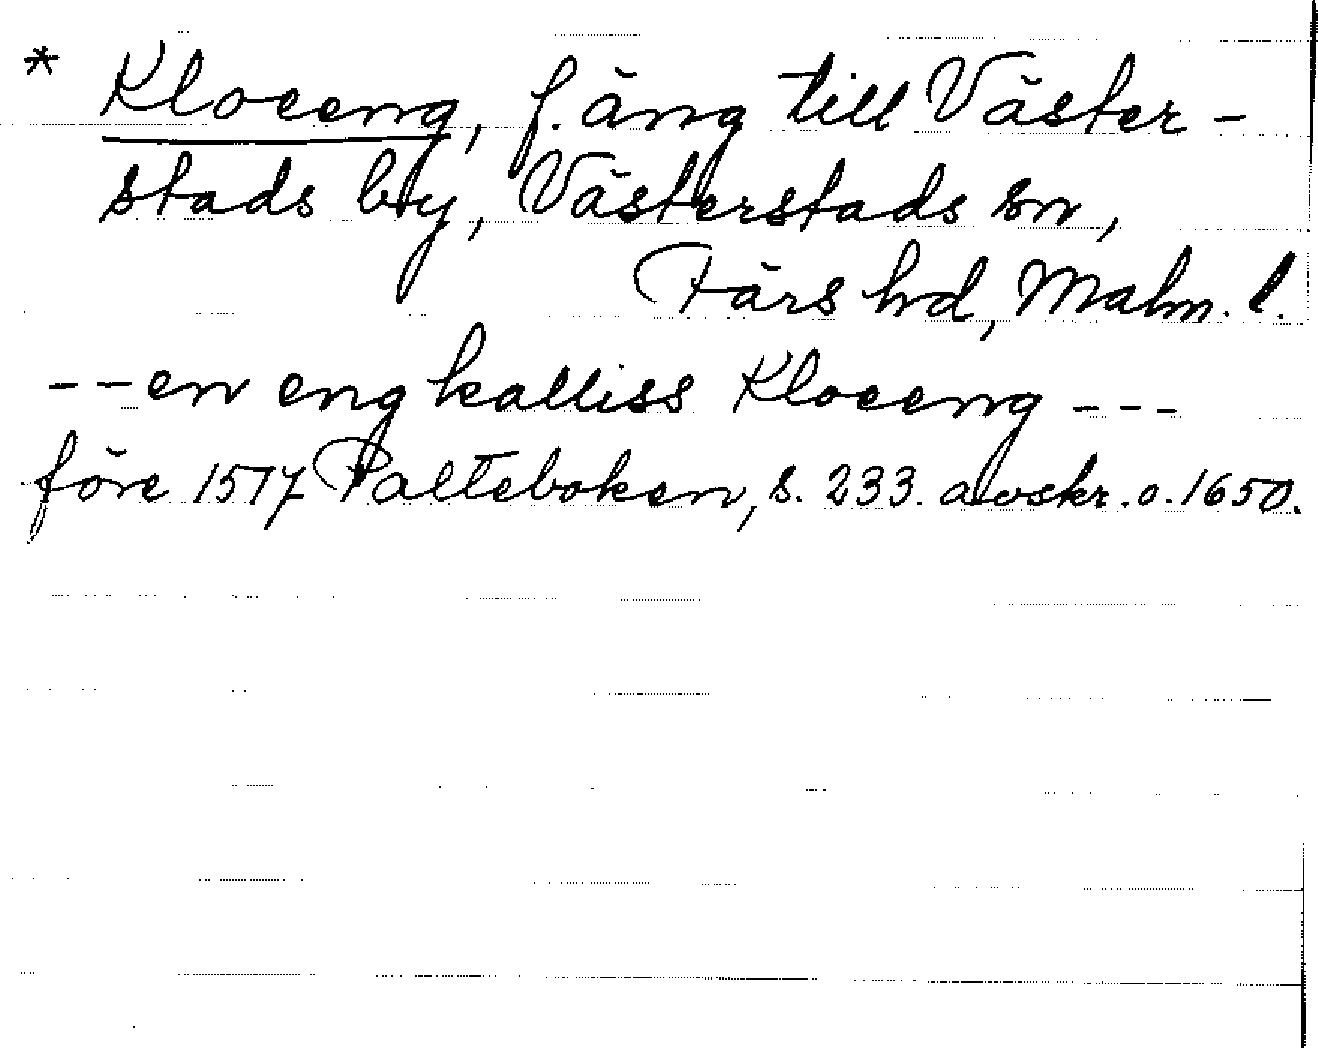 * Kloeeng, f. äng till Väster-
stads by, Västerstads sn,
Färs hd, Malm. l.
--en eng kalliss Kloeeng ---
före 1517 Palteboken, s. 233. avskr. o. 1650.